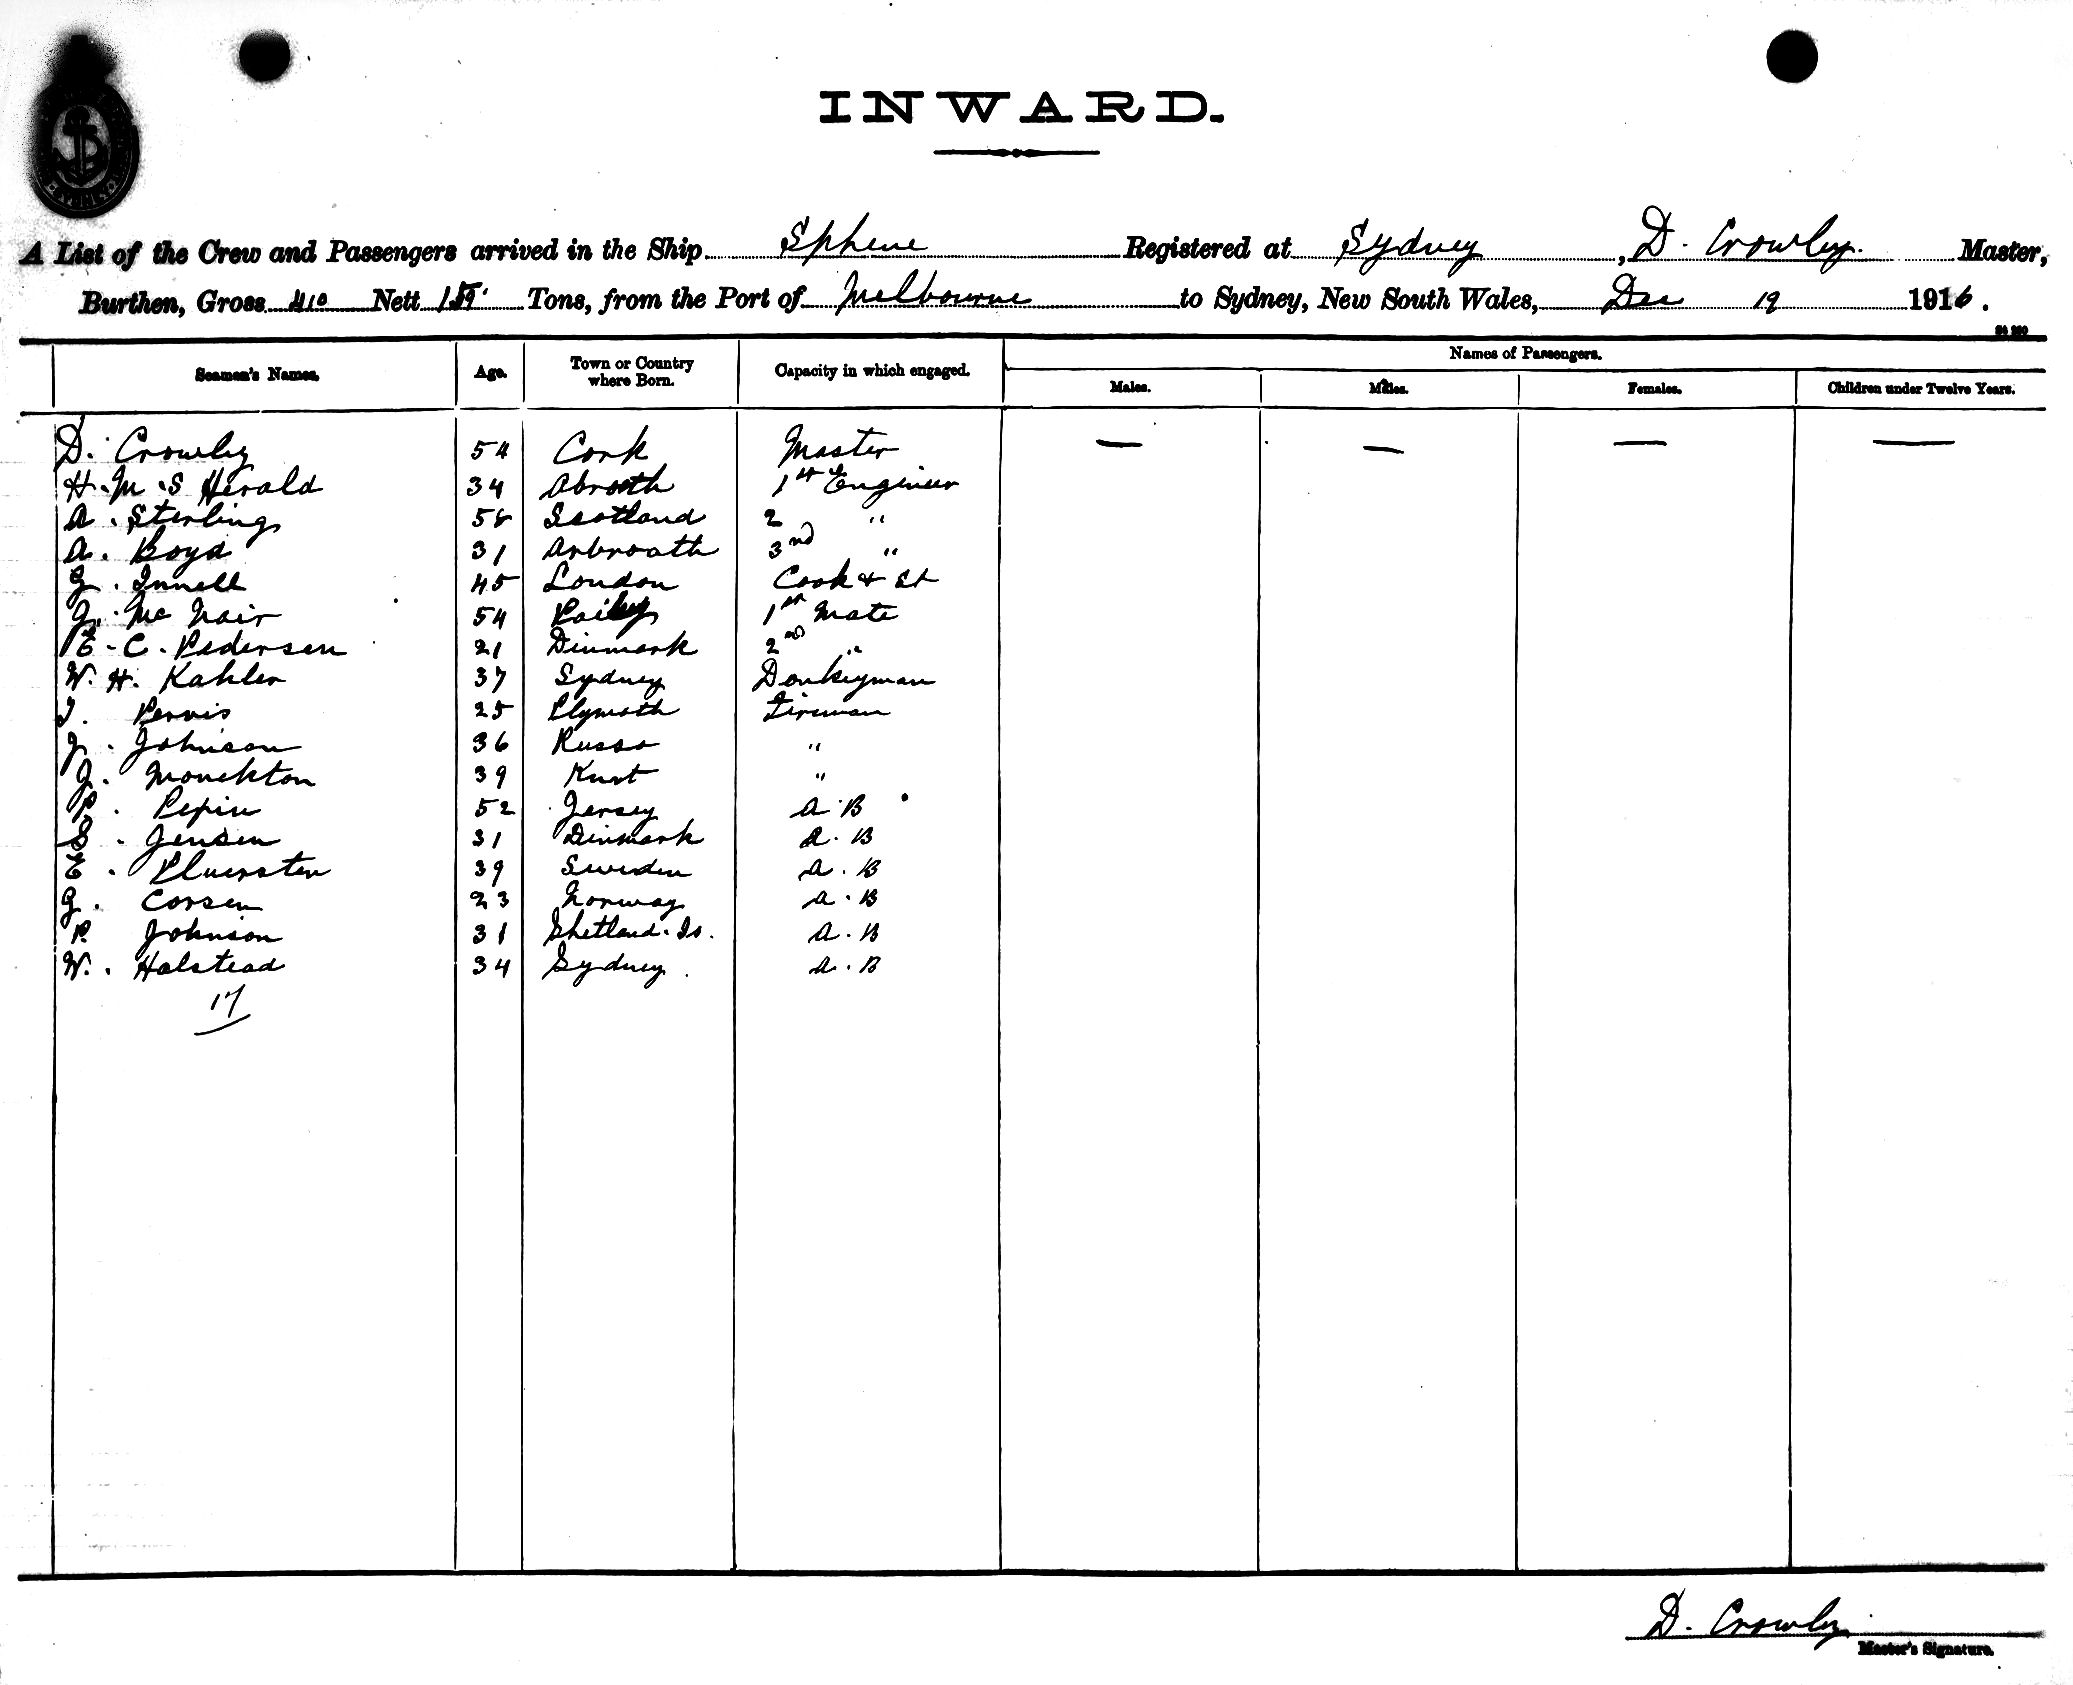 INWARD.
A List of the Crew and Passengers arrived in the Ship Sphene Registered at Sydney, D. Crowley Master,
Burthen, Gross 410 Nett Tons, from the Port of Melbourne to Sydney, New South Wales, Dec 19 1916.
Names of Passengers.
Seamen's Names. Age. Town or Country where Born. Capacity in which engaged. Males. Males. Females. Children under Twelve Years.
D. Crowley 54 Cork Master — — — —
H. M. S Herald 34 Abroath 1st Engineer
A. Sterling Scotland 2 "
A. Boyd 31 Arbroath 3nd "
45 London Cook & St
J. Mc Nair 54 1st Mate
E. C. Pedersen 21 Dinmark 2nd "
W. H. Kahler 37 Sydney Donkeyman
Pervis 25 Plymoth Fireman
J. Johnson 36 "
J. Monckton 39 "
P. Pepin 52 Jersey A. B
S. Jensen 31 Dinmark A. B
E. 39 Sweden A. B
G. Corsen 23 Norway A. B
P. Johnson 31 Shetland. Is. A. B
W. Halstead 34 Sydney A. B
17
D. Crowley
Master's Signature.